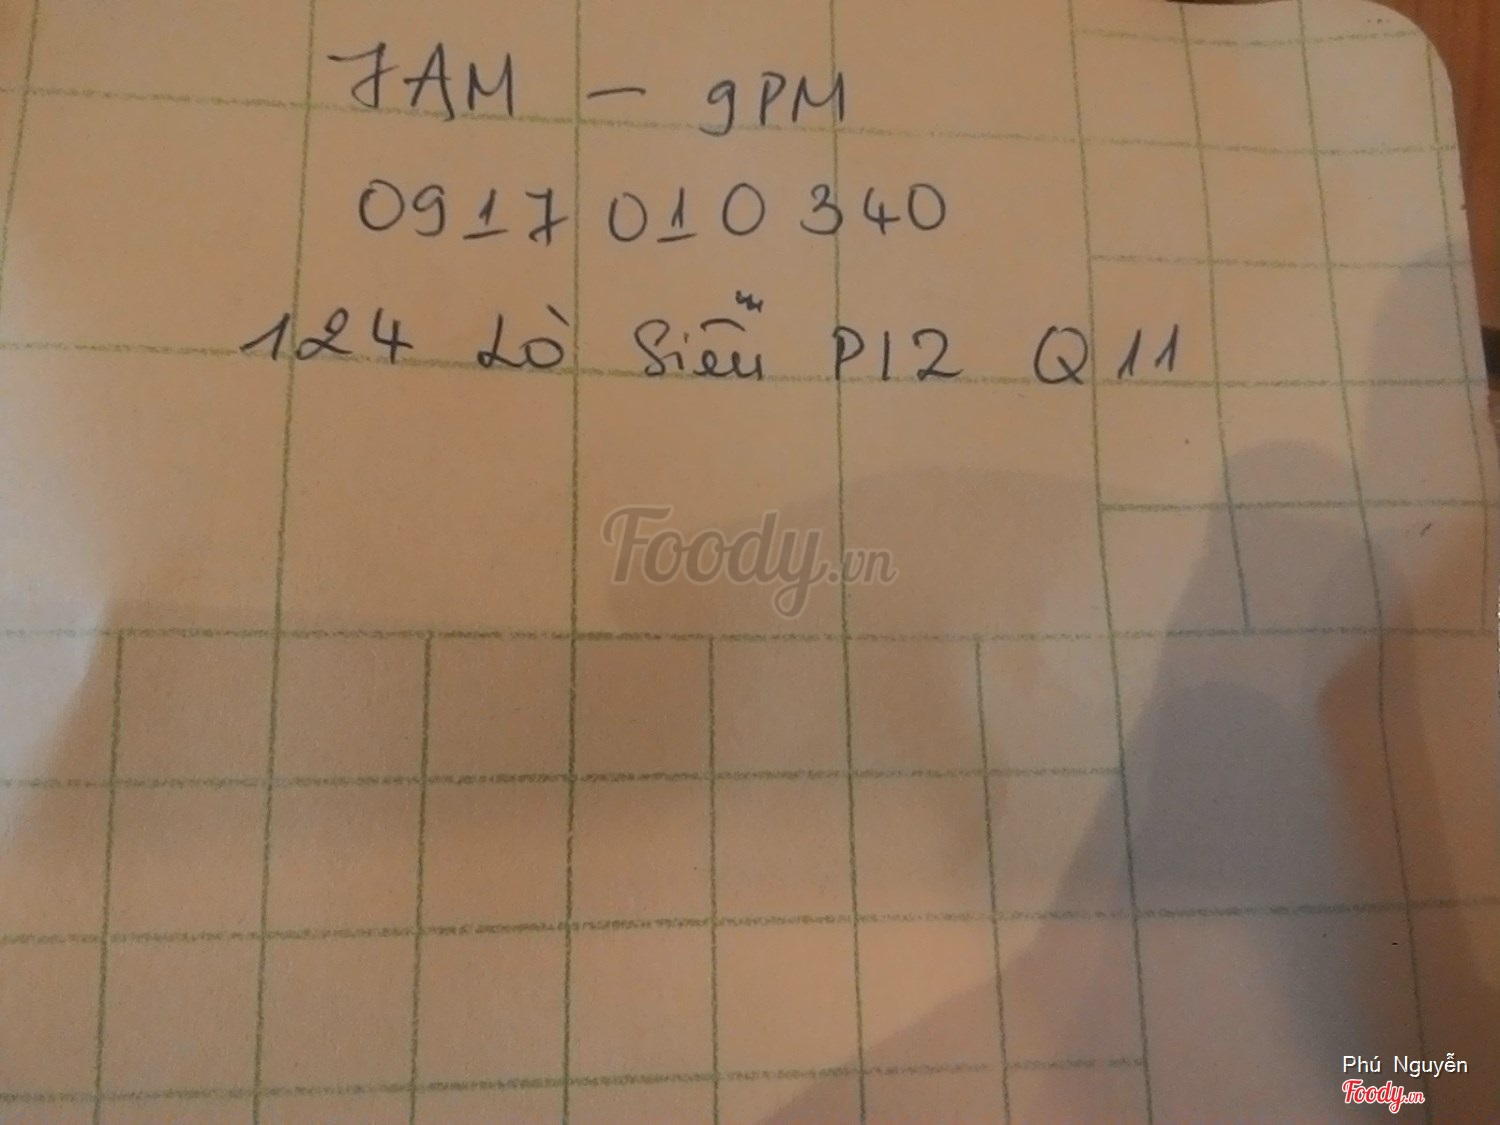 7AM - 9PM
0917 010 340
124 Lò Siêu P12 Q11
Foody.vn
Phú Nguyễn
Foody.vn